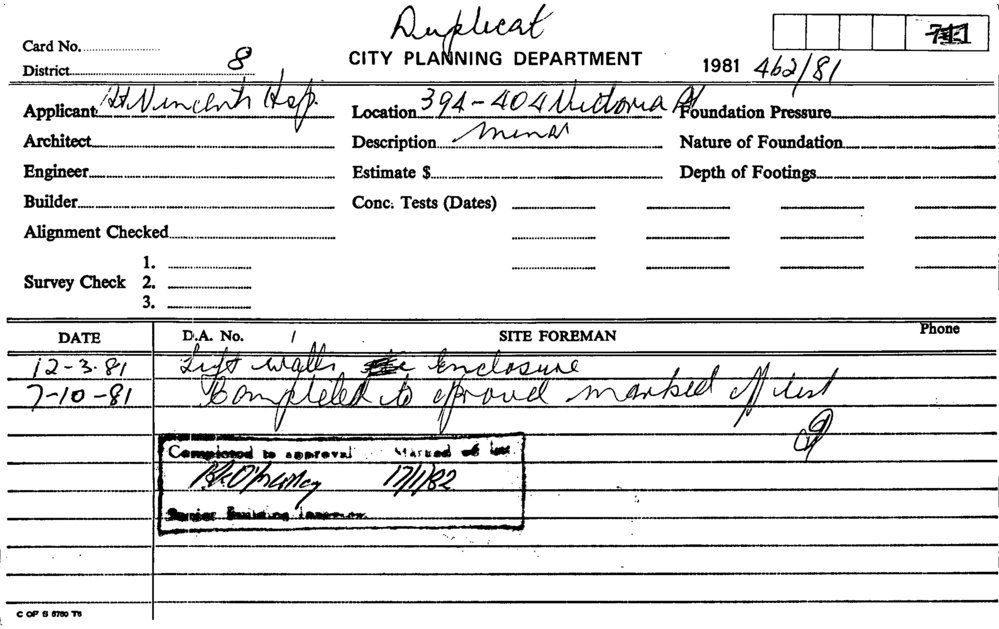 Duplicat
Card No.
CITY PLANNING DEPARTMENT
1981 462/81
District 8
Applicant St Vincents Hsp. Location 394-404 Victoria St Foundation Pressure
Architect Description Minor Nature of Foundation
Engineer Estimate $ Depth of Footings
Builder Conc. Tests (Dates)
Alignment Checked
1.
Survey Check 2.
3.
DATE D.A. No. SITE FOREMAN Phone
12-3-81 Lift walls enclosure
7-10-81 Completed to aproval marked off list
Completed to approval Marked off list
17/1/82
Senior Building Inspector
C OF S 5760 T5